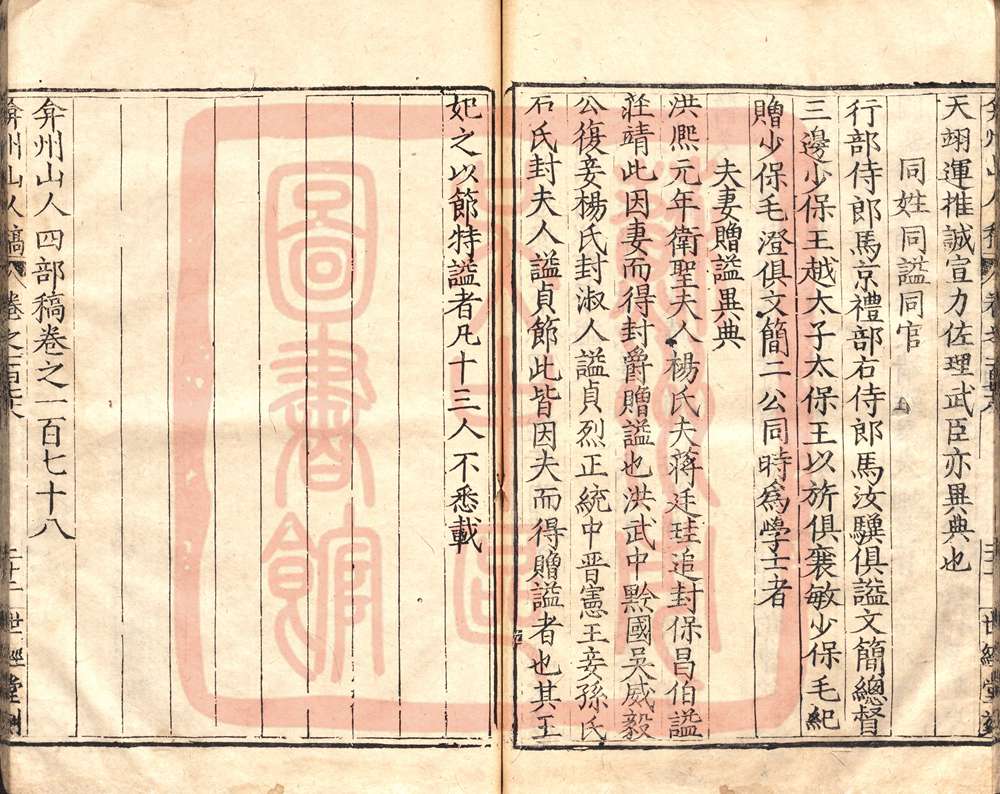 天翊運推誠宣力佐理武臣亦異典也
同姓同謚同官
行部侍郎馬京禮部右侍郎馬汝驥俱謚文簡總督
三邊少保王越太子太保王以旂俱襄敏少保毛紀
贈少保毛澄俱文簡二公同時爲學士者
夫妻贈謚異典
洪熙元年衛聖夫人楊氏夫蔣廷珪追封保昌伯謚
莊靖此因妻而得封爵贈謚也洪武中黔國吳威毅
公復妾楊氏封淑人謚貞烈正統中晋憲王妾孫氏
石氏封夫人謚貞節此皆因夫而得贈謚者也其王
妃之以節特謚者凡十三人不悉載
弇州山人四部稿卷之一百七十八
弇州山人稿 卷之一百七十八 二十二 世經堂刻
圖書館